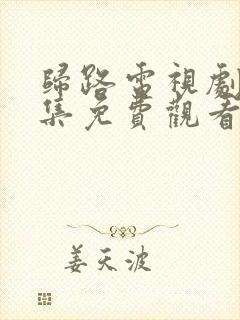 歸路電視劇
集免費觀看
姜天波